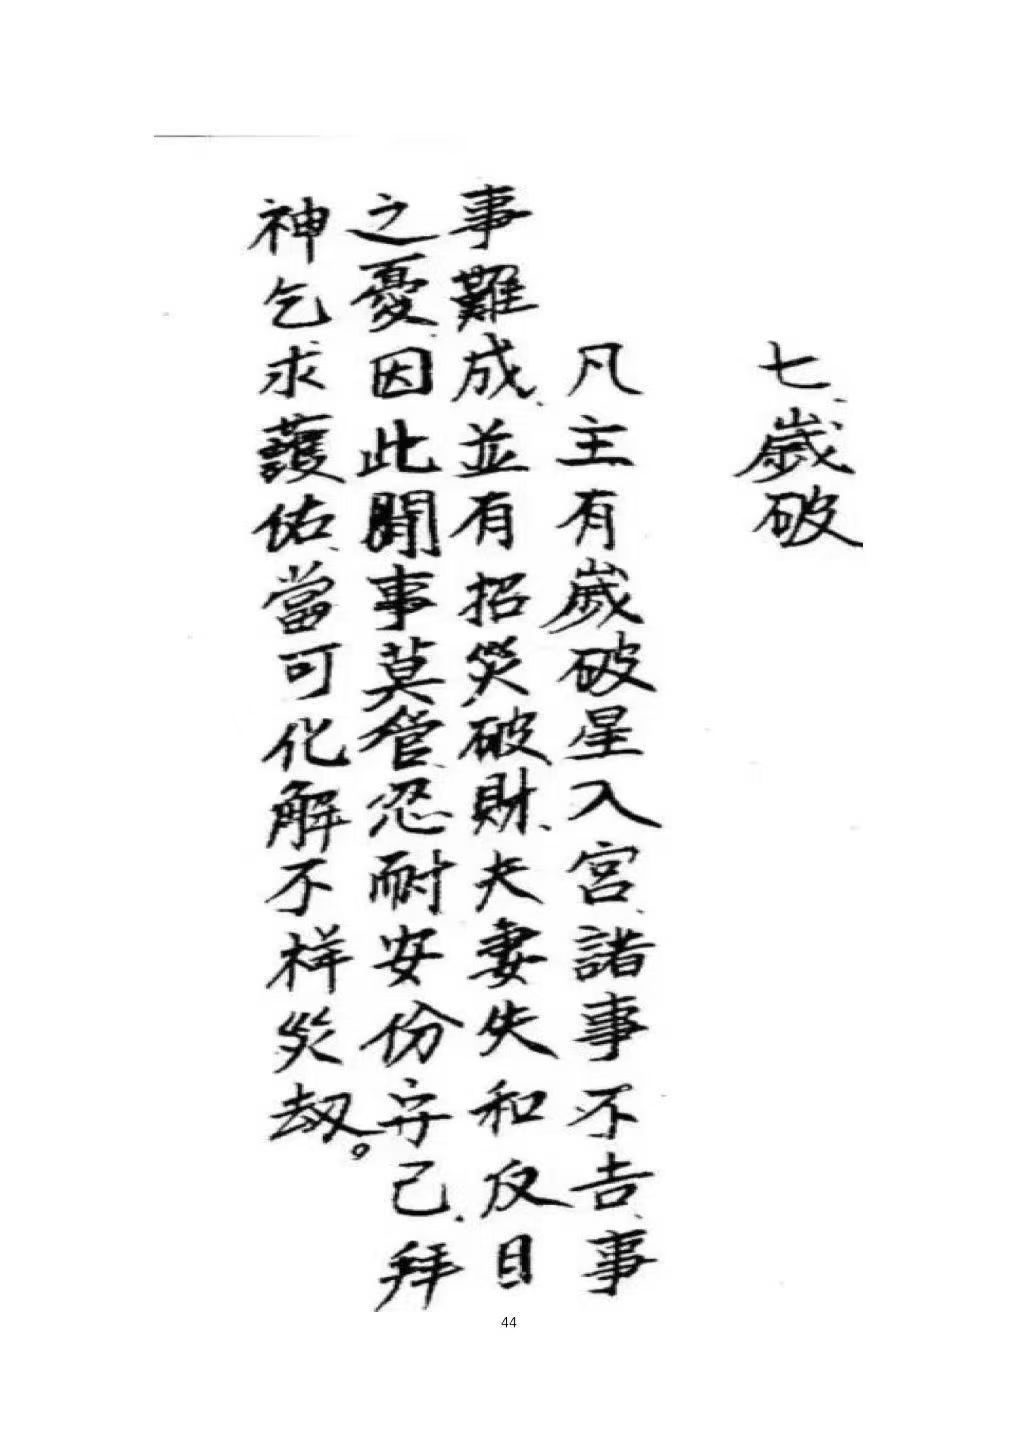 七、歲破
凡主有歲破星入宮、諸事不吉、事
事難成、並有招災破財、夫妻失和反目
之憂、因此閒事莫管、忍耐安份守己、拜
神乞求護佑、當可化解不祥災劫。
44